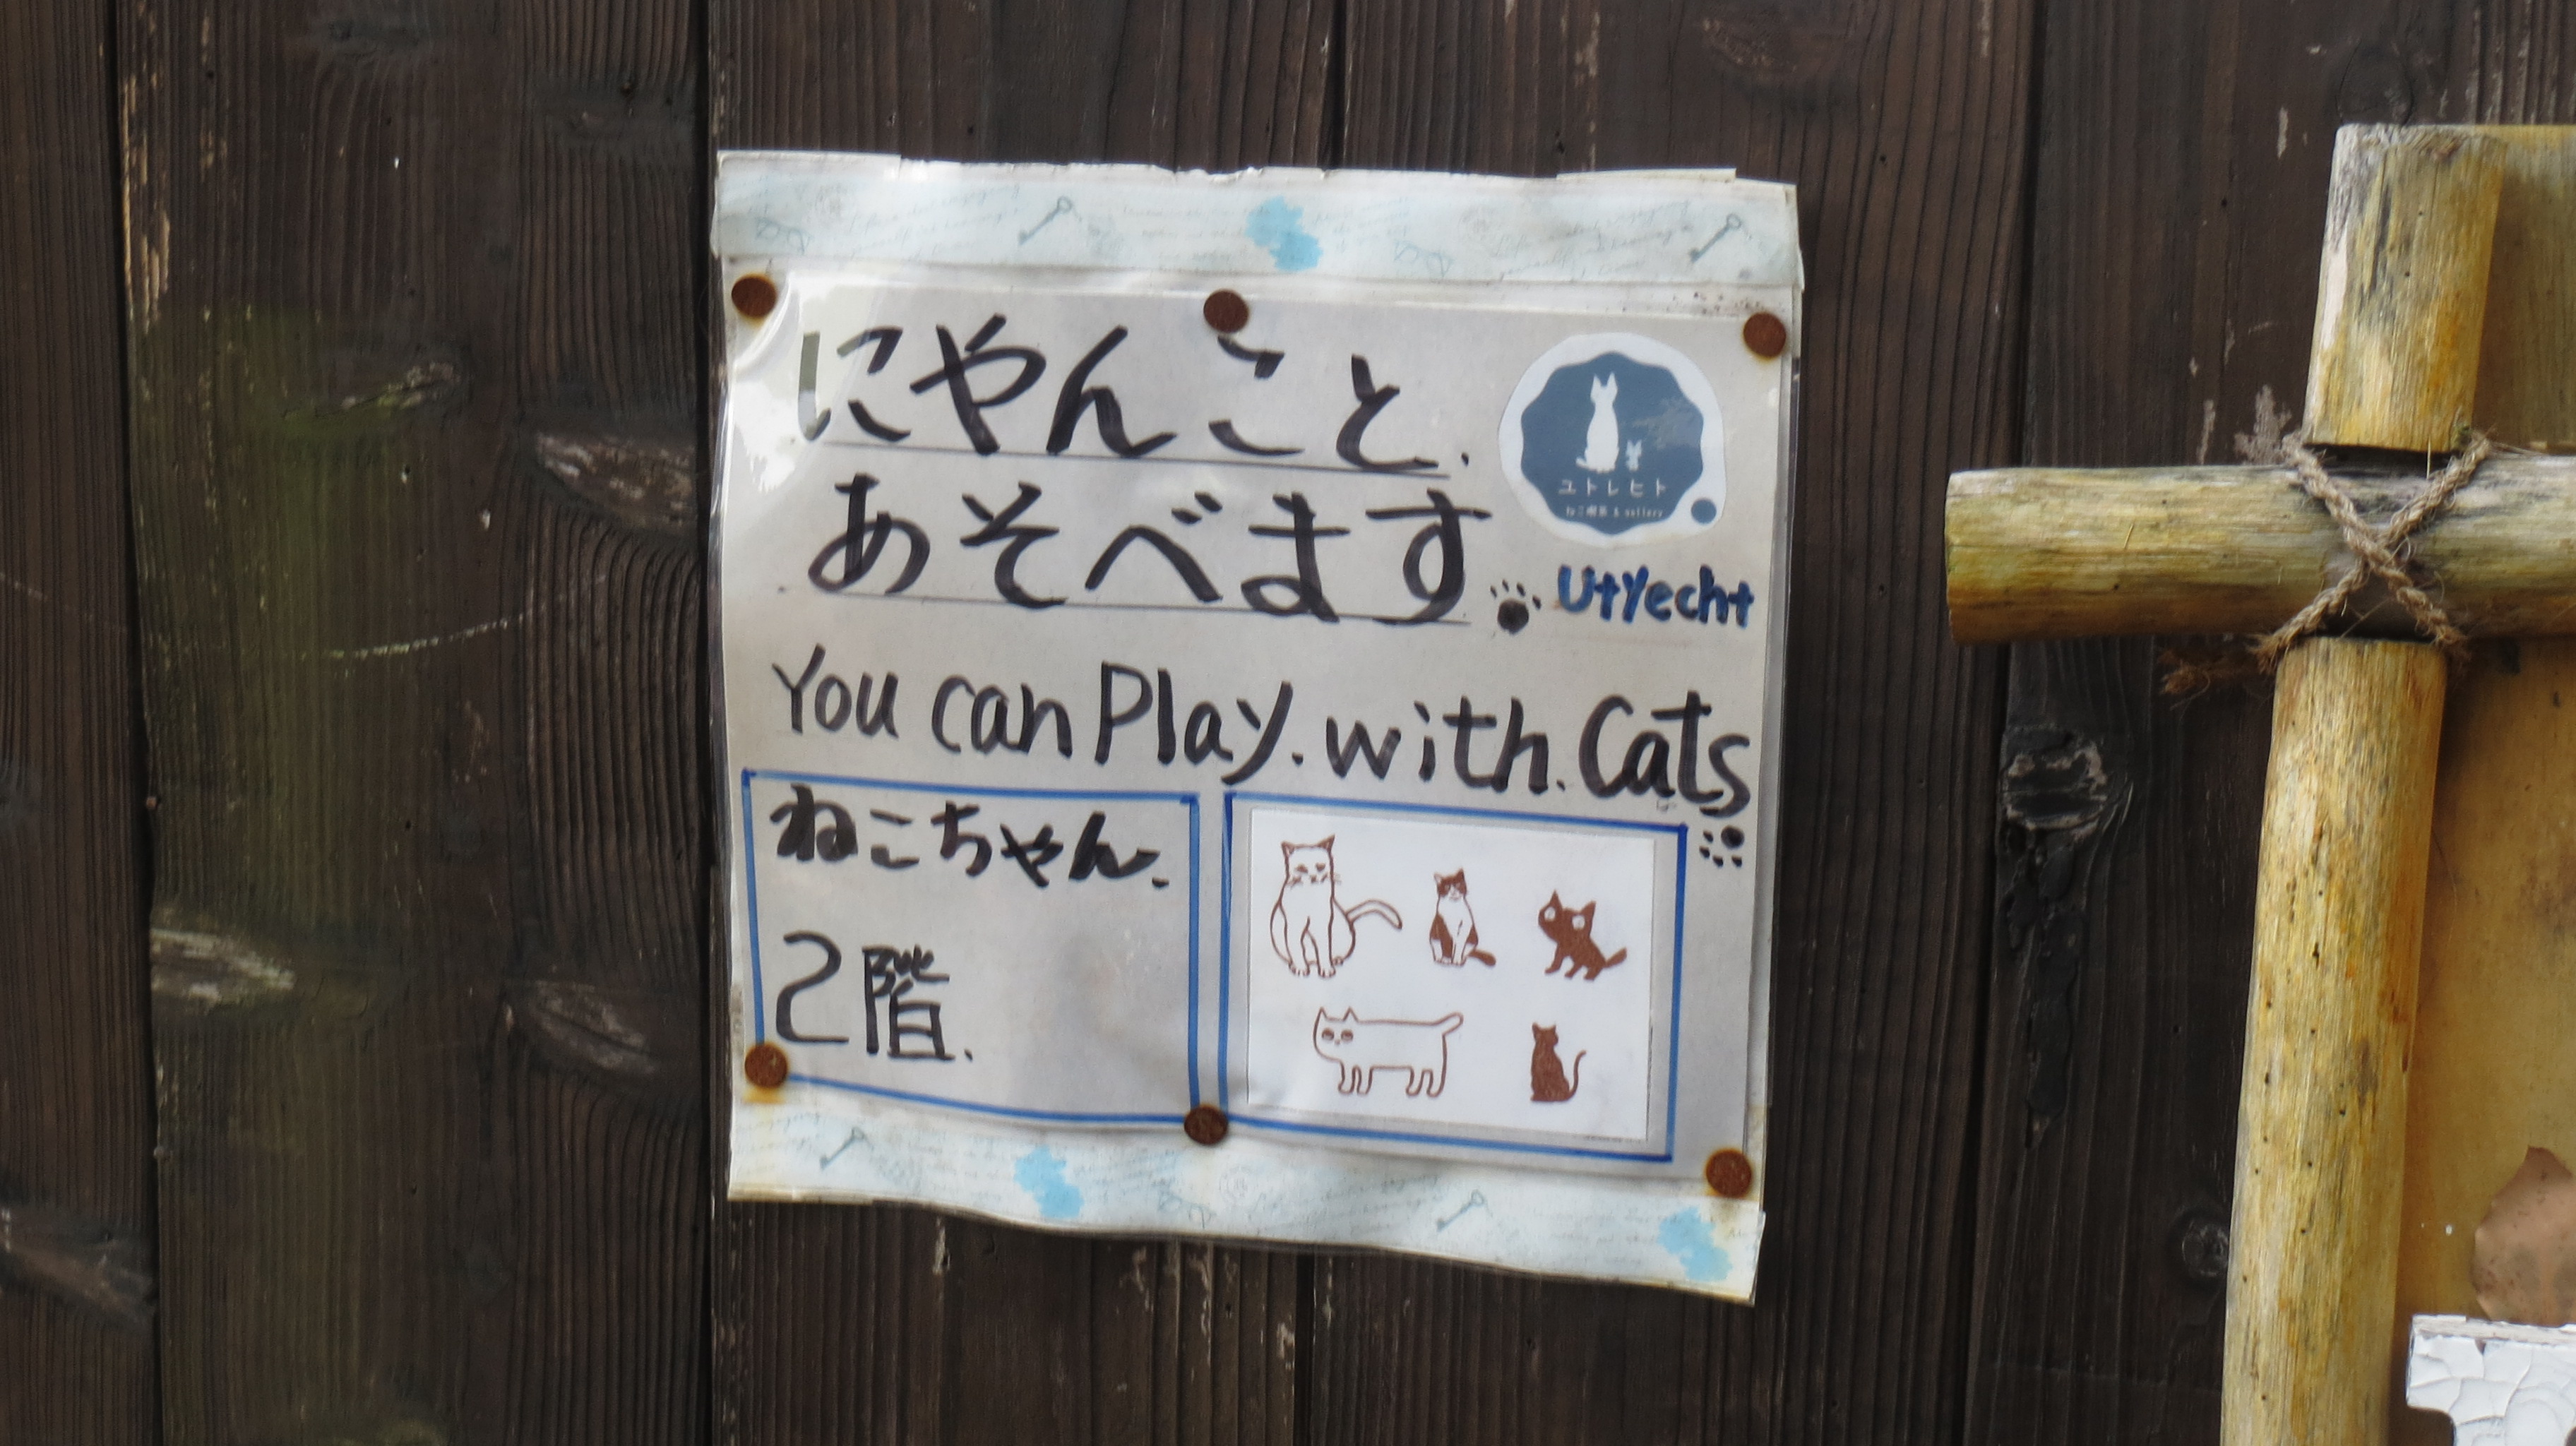 にゃんこと.
あそべます
ユトレヒト
ねこ喫茶 & gallery
Utrecht
You can Play. with. Cats
ねこちゃん.
2階.